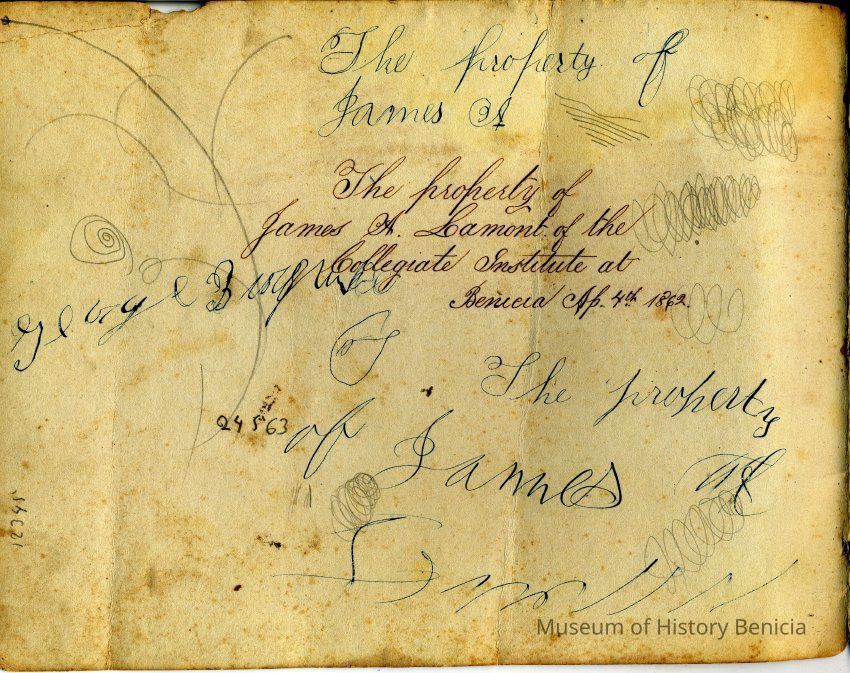 The property of
James A
The property of
James A. Lamont of the
Collegiate Institute at
Benicia Ap. 4th 1862.
George
The property
of James
24563
12345
Museum of History Benicia